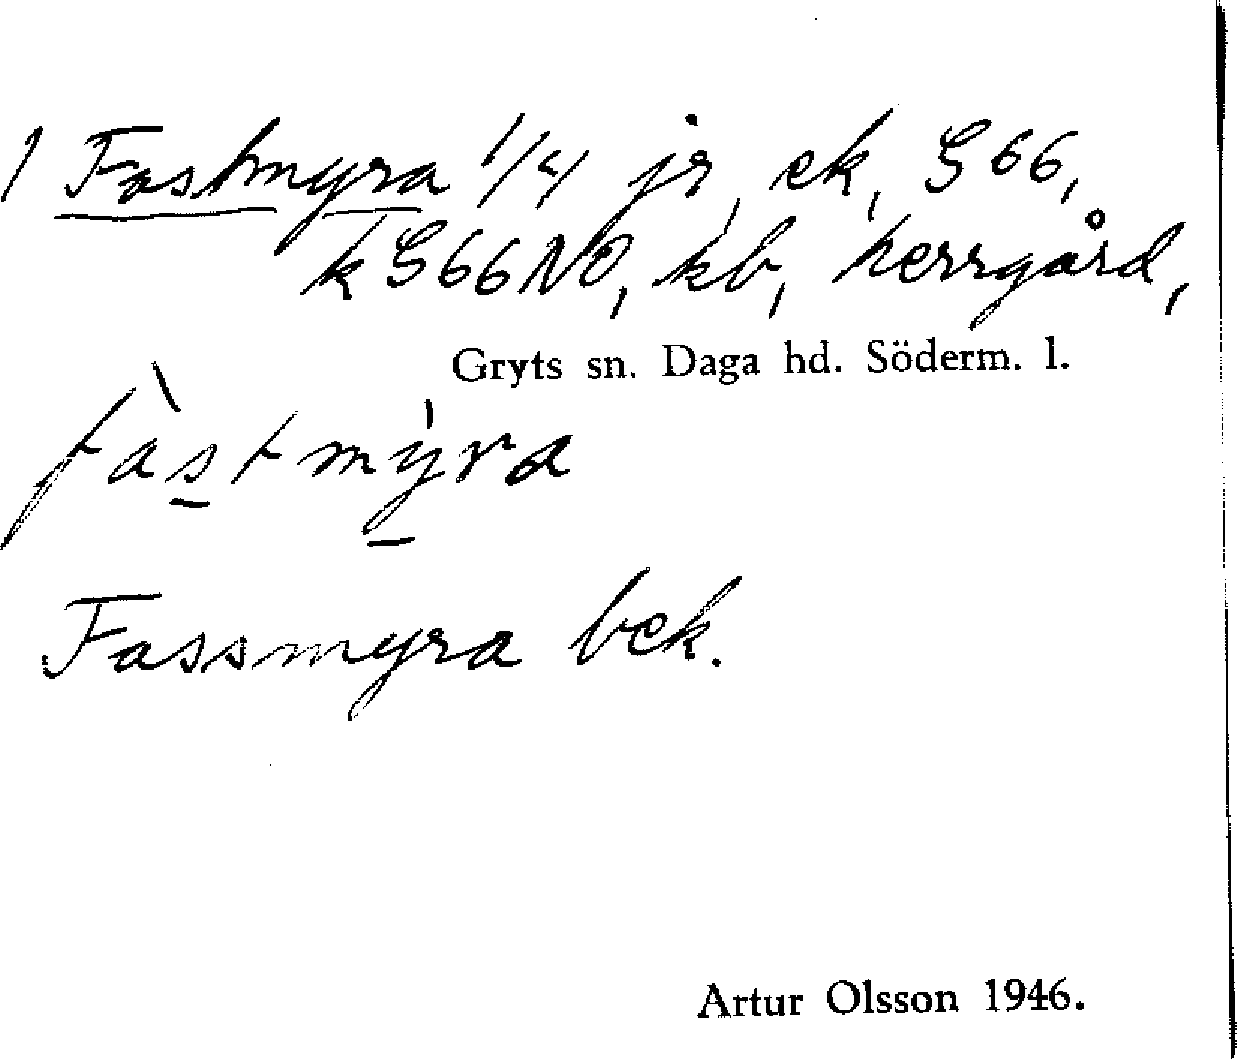 1 Fastmyra 1/4 jr, ek, S66,
k S66NO, kb, herrgård,
Gryts sn. Daga hd. Söderm. l.
fàstmýra
Fassmyra bek.
Artur Olsson 1946.